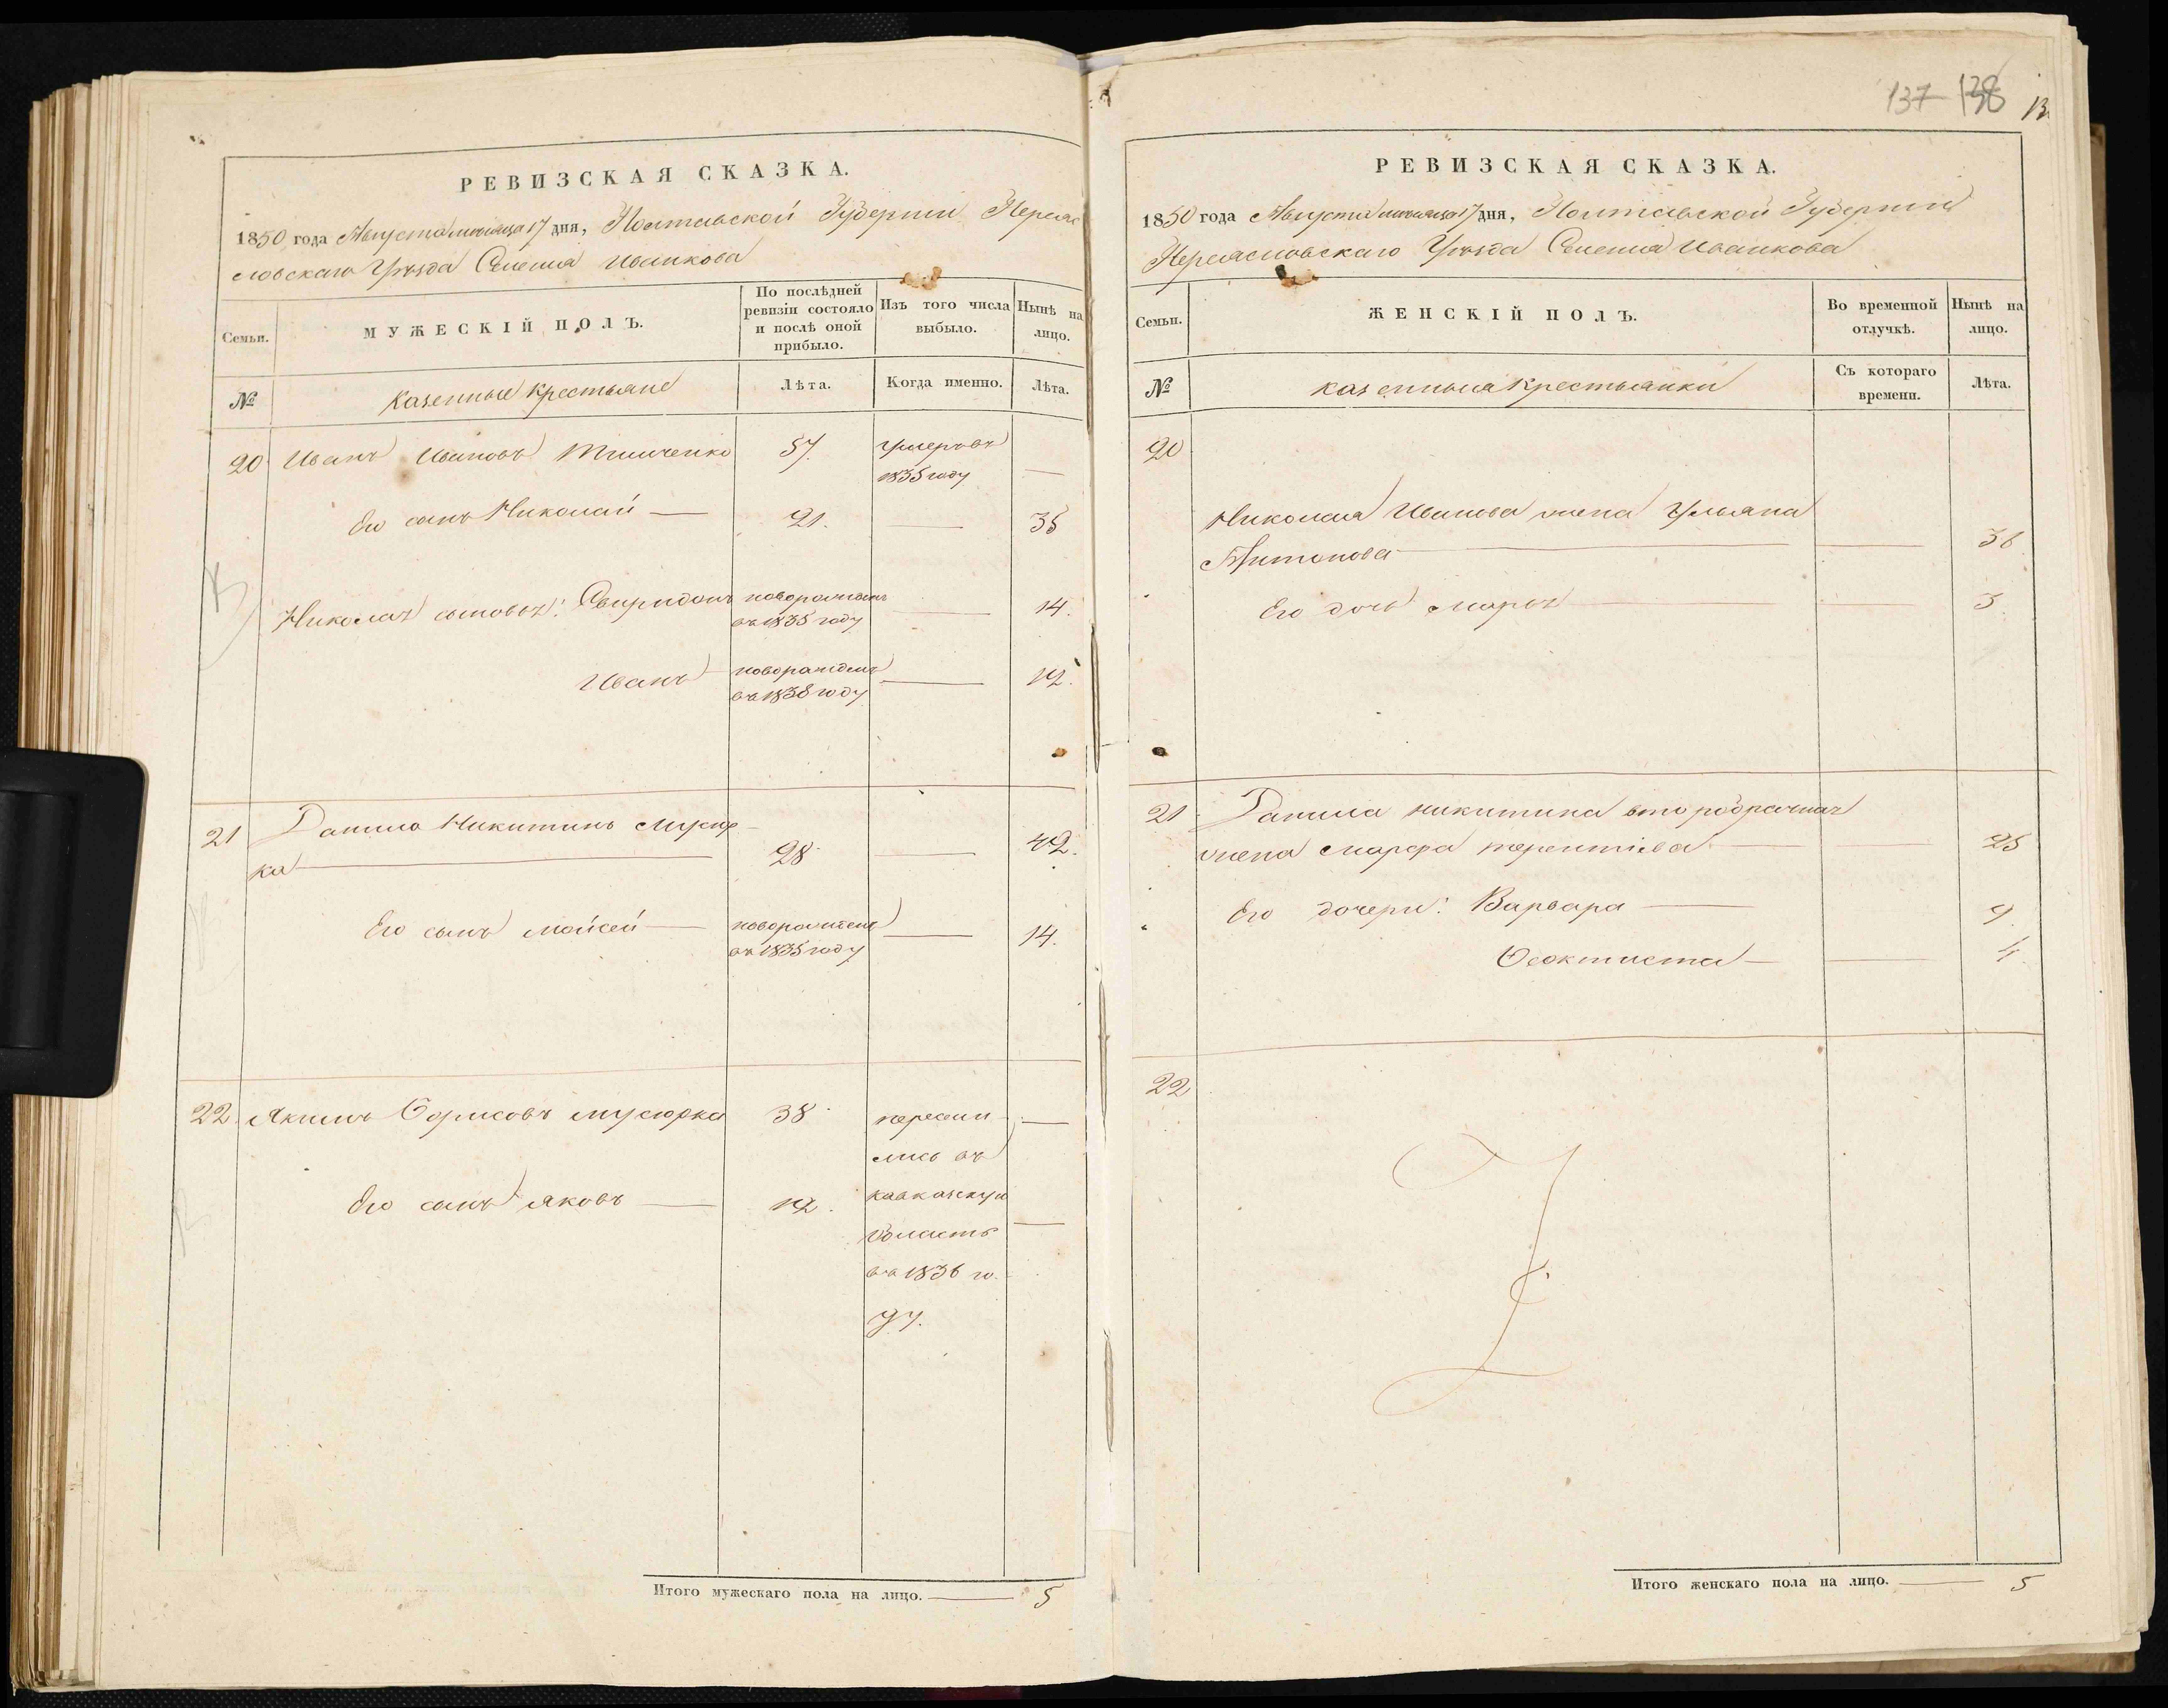 РЕВИЗСКАЯ СКАЗКА.
1850 года Августа месяца 17 дня, Полтавской Губернии Переяс
словскаго Уѣзда Селенія Иванкова
Семьи.
МУЖЕСКІЙ ПОЛЪ.
По послѣдней ревизіи состояло и послѣ оной прибыло.
Изъ того числа выбыло.
Нынѣ на лицо.
№
Казенные Крестьяне
Лѣта.
Когда именно.
Лѣта.
20 Иванъ Ивановъ Тимченко 57. Умеръ въ
1835 году —
Его сынъ Николай — 21. — 35
Николая сыновья: Свиридонъ новорожденъ — 14.
въ 1835 году
Иванъ новорожденъ — 12.
въ 1838 году
21 Данило Никитинъ
ка — 28 — 42.
Его сынъ Мойсей — новорожденъ — 14.
въ 1835 году
22. Якимъ Борисовъ Мусюрка 38 пересели —
лись въ
Его сынъ Яковъ — 12. кавказскую
область —
въ 1836 го
ду.
Итого мужескаго пола на лицо. — 5
137 138
РЕВИЗСКАЯ СКАЗКА.
1850 года Августа месяца 17 дня, Полтавской Губерніи
Переясловскаго Уѣзда Селенія Иванкова
Семьи.
ЖЕНСКІЙ ПОЛЪ.
Во временной отлучкѣ.
Нынѣ на лицо.
№
казенныя Крестьянки
Съ котораго времени.
Лѣта.
20
Николая Иванова жена Ульяна
Антонова — — 36
Его дочь Марья — — 3.
21 Данила Никитина второбрачная
жена Марфа Терентіева — — 25
Его дочери: Варвара — 9.
Ѳеоктиста — — 4
22
Итого женскаго пола на лицо. — 5